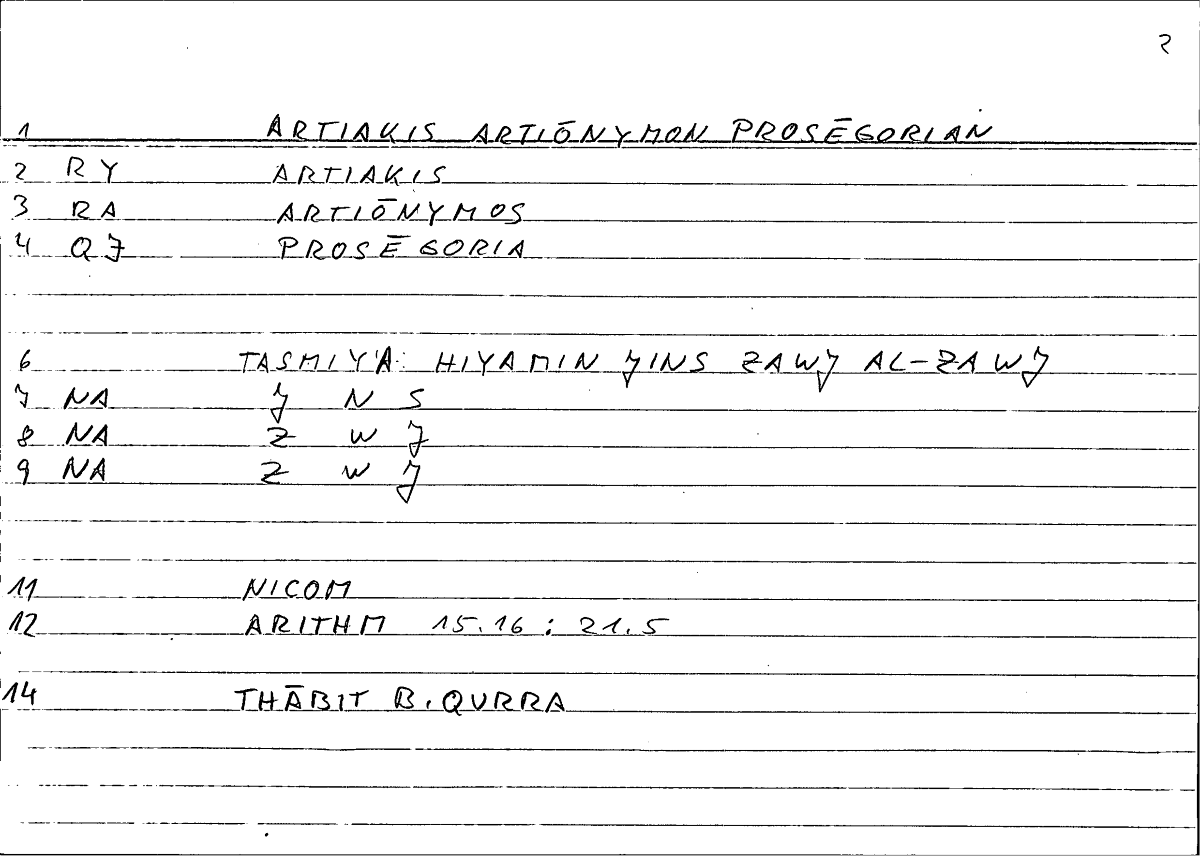 2
1 ARTIAKIS ARTIŌNYMON PROSĒGORIAN
2 RY ARTIAKIS
3 RA ARTIŌNYMOS
4 QJ PROSĒGORIA
6 TASMIYA: HIYAMIN JINS ZAWJ AL-ZAWJ
7 NA J N S
8 NA Z W J
9 NA Z W J
11 NICOM
12 ARITHM 15.16 : 21.5
14 THĀBIT B. QURRA